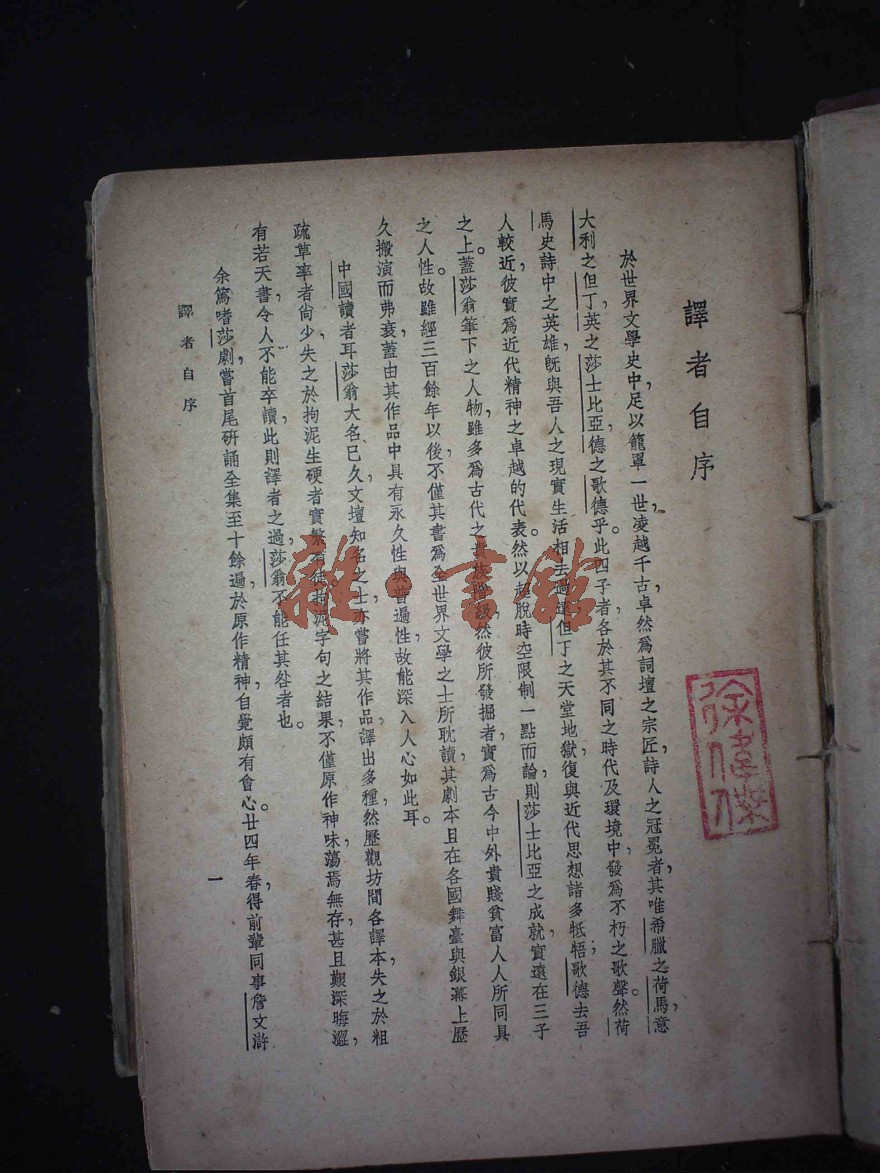 譯者自序
於世界文學史中，足以籠罩一世，凌越千古，卓然爲詞壇之宗匠，詩人之冠冕者，其唯希臘之荷馬，意
大利之但丁，英之莎士比亞，德之歌德乎。此四子者，各於其不同之時代及環境中，發爲不朽之歌聲。然荷
馬史詩中之英雄，既與吾人之現實生活相去過遠；但丁之天堂地獄，復與近代思想諸多牴牾；歌德去吾
人較近，彼實爲近代精神之卓越的代表。然以超脫時空限制一點而論，則莎士比亞之成就，實遠在三子
之上。蓋莎翁筆下之人物，雖多爲古代之貴族階級，然彼所發掘者，實爲古今中外貴賤貧富人人所同具
之人性。故雖經三百餘年以後，不僅其書爲全世界文學之士所耽讀，其劇本且在各國舞臺與銀幕上歷
久搬演而弗衰，蓋由其作品中具有永久性與普遍性，故能深入人心如此耳。
中國讀者耳莎翁大名已久，文壇知名之士，亦嘗將其作品，譯出多種，然歷觀坊間各譯本，失之於粗
疏草率者尙少，失之於拘泥生硬者實繁有徒。拘泥字句之結果，不僅原作神味，蕩焉無存，甚且艱深晦澀，
有若天書，令人不能卒讀，此則譯者之過，莎翁不能任其咎者也。
余篤嗜莎劇，嘗首尾研誦全集至十餘遍，於原作精神，自覺頗有會心。廿四年春，得前輩同事詹文滸
譯者自序
一
雜·書館